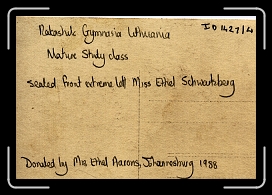 ID 1427/4
Rabashik Gymnasia Lithuania
Nature Study class
seated front extreme left Miss Ethel Schwartsberg
Donated by Mrs Ethel Aarons, Johannesburg 1988